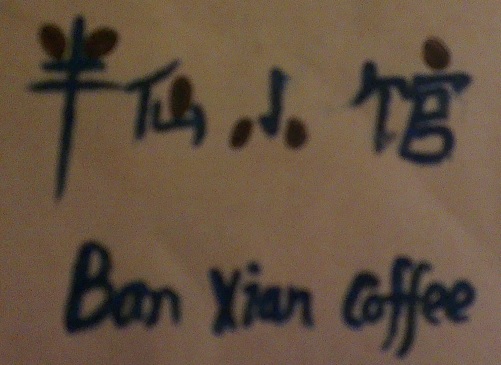 半仙小馆
Ban Xian Coffee